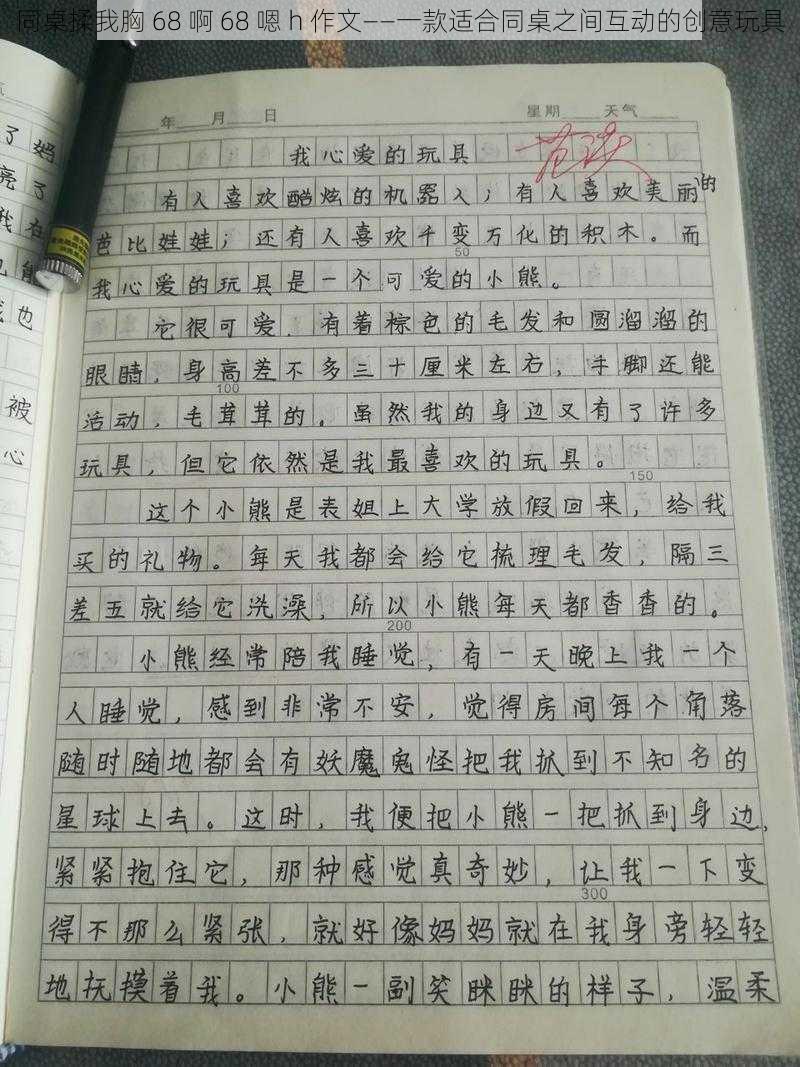 同桌揉我胸 68 啊 68 嗯 h 作文——一款适合同桌之间互动的创意玩具
年 月 日 星期 天气
我心爱的玩具
范读
有人喜欢酷炫的机器人；有人喜欢美丽的
芭比娃娃；还有人喜欢千变万化的积木。而
50
我心爱的玩具是一个可爱的小熊。
它很可爱，有着棕色的毛发和圆溜溜的
眼睛，身高差不多三十厘米左右，手脚还能
100
活动，毛茸茸的。虽然我的身边又有了许多
玩具，但它依然是我最喜欢的玩具。
150
这个小熊是表姐上大学放假回来，给我
买的礼物。每天我都会给它梳理毛发，隔三
差五就给它洗澡，所以小熊每天都香香的。
200
小熊经常陪我睡觉，有一天晚上我一个
人睡觉，感到非常不安，觉得房间每个角落
随时随地都会有妖魔鬼怪把我抓到不知名的
星球上去。这时，我便把小熊一把抓到身边，
紧紧抱住它，那种感觉真奇妙，让我一下变
300
得不那么紧张，就好像妈妈就在我身旁轻轻
地抚摸着我。小熊一副笑眯眯的样子，温柔
了妈
亮了
我在
也
被
心